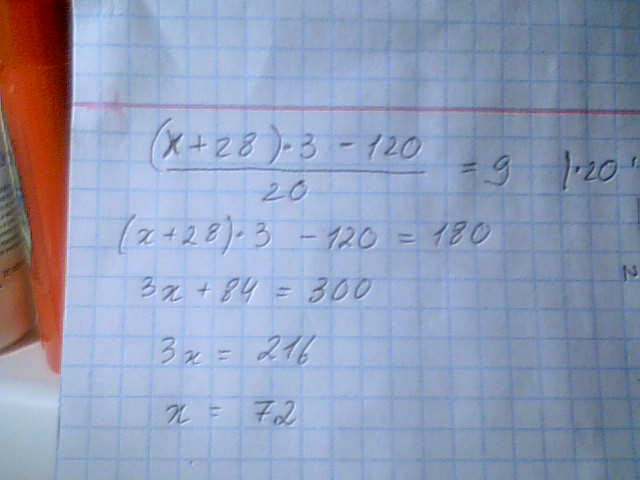 (x+28)·3 - 120
20
= 9 |·20
(x+28)·3 - 120 = 180
3x + 84 = 300
3x = 216
x = 72